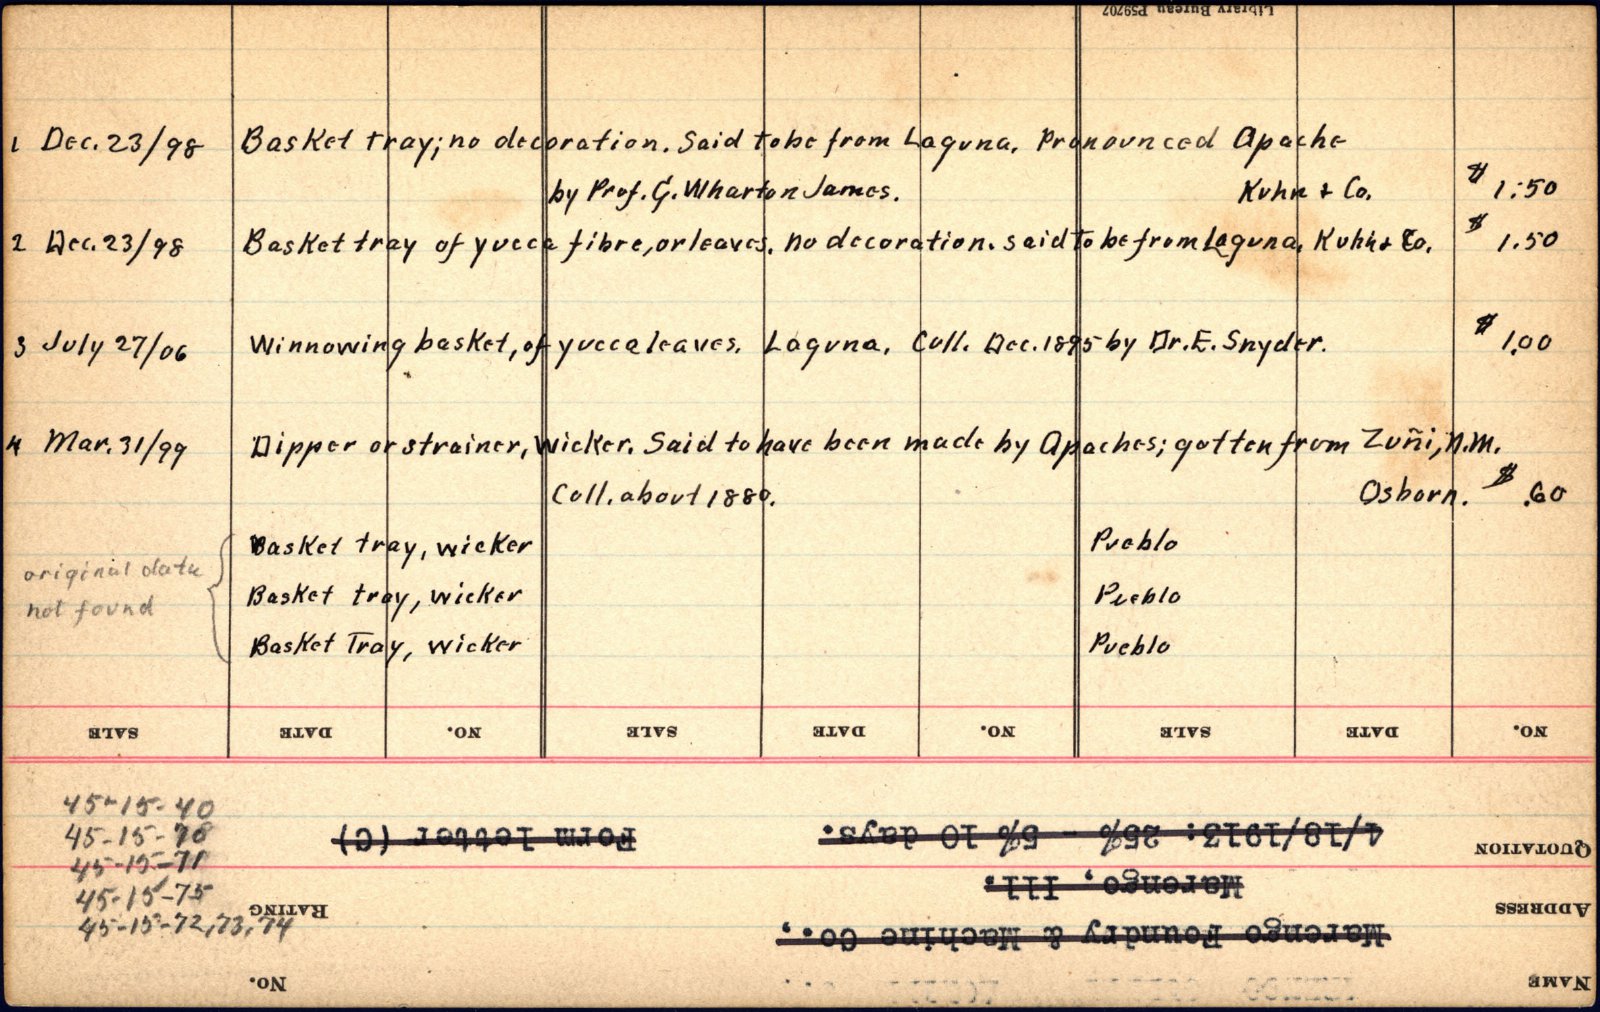 Library Bureau P59707
1 Dec. 23/98 Basket tray; no decoration. Said to be from Laguna. Pronounced Apache
by Prof. G. Wharton James. Kuhn & Co. $ 1.50
2 Dec. 23/98 Basket tray of yucca fibre, or leaves. No decoration. Said to be from Laguna. Kuhn & Co. $ 1.50
3 July 27/06 Winnowing basket, of yucca leaves. Laguna. Coll. Dec. 1895 by Dr. E. Snyder. $ 1.00
4 Mar. 31/99 Dipper or strainer, wicker. Said to have been made by Apaches; gotten from Zuñi, N.M.
Coll. about 1880. Osborn. $ .60
Basket tray, wicker Pueblo
original data
Basket tray, wicker Pueblo
not found
Basket Tray, wicker Pueblo
SALE DATE NO. SALE DATE NO. SALE DATE NO.
45-15-40
45-15-70
45-15-71
45-15-75
45-15-72,73,74
Form letter (C) 4/18/1913: 25% - 5% 10 days.
QUOTATION
Marengo, Ill.
RATING
ADDRESS
Marengo Foundry & Machine Co.,
No.
NAME